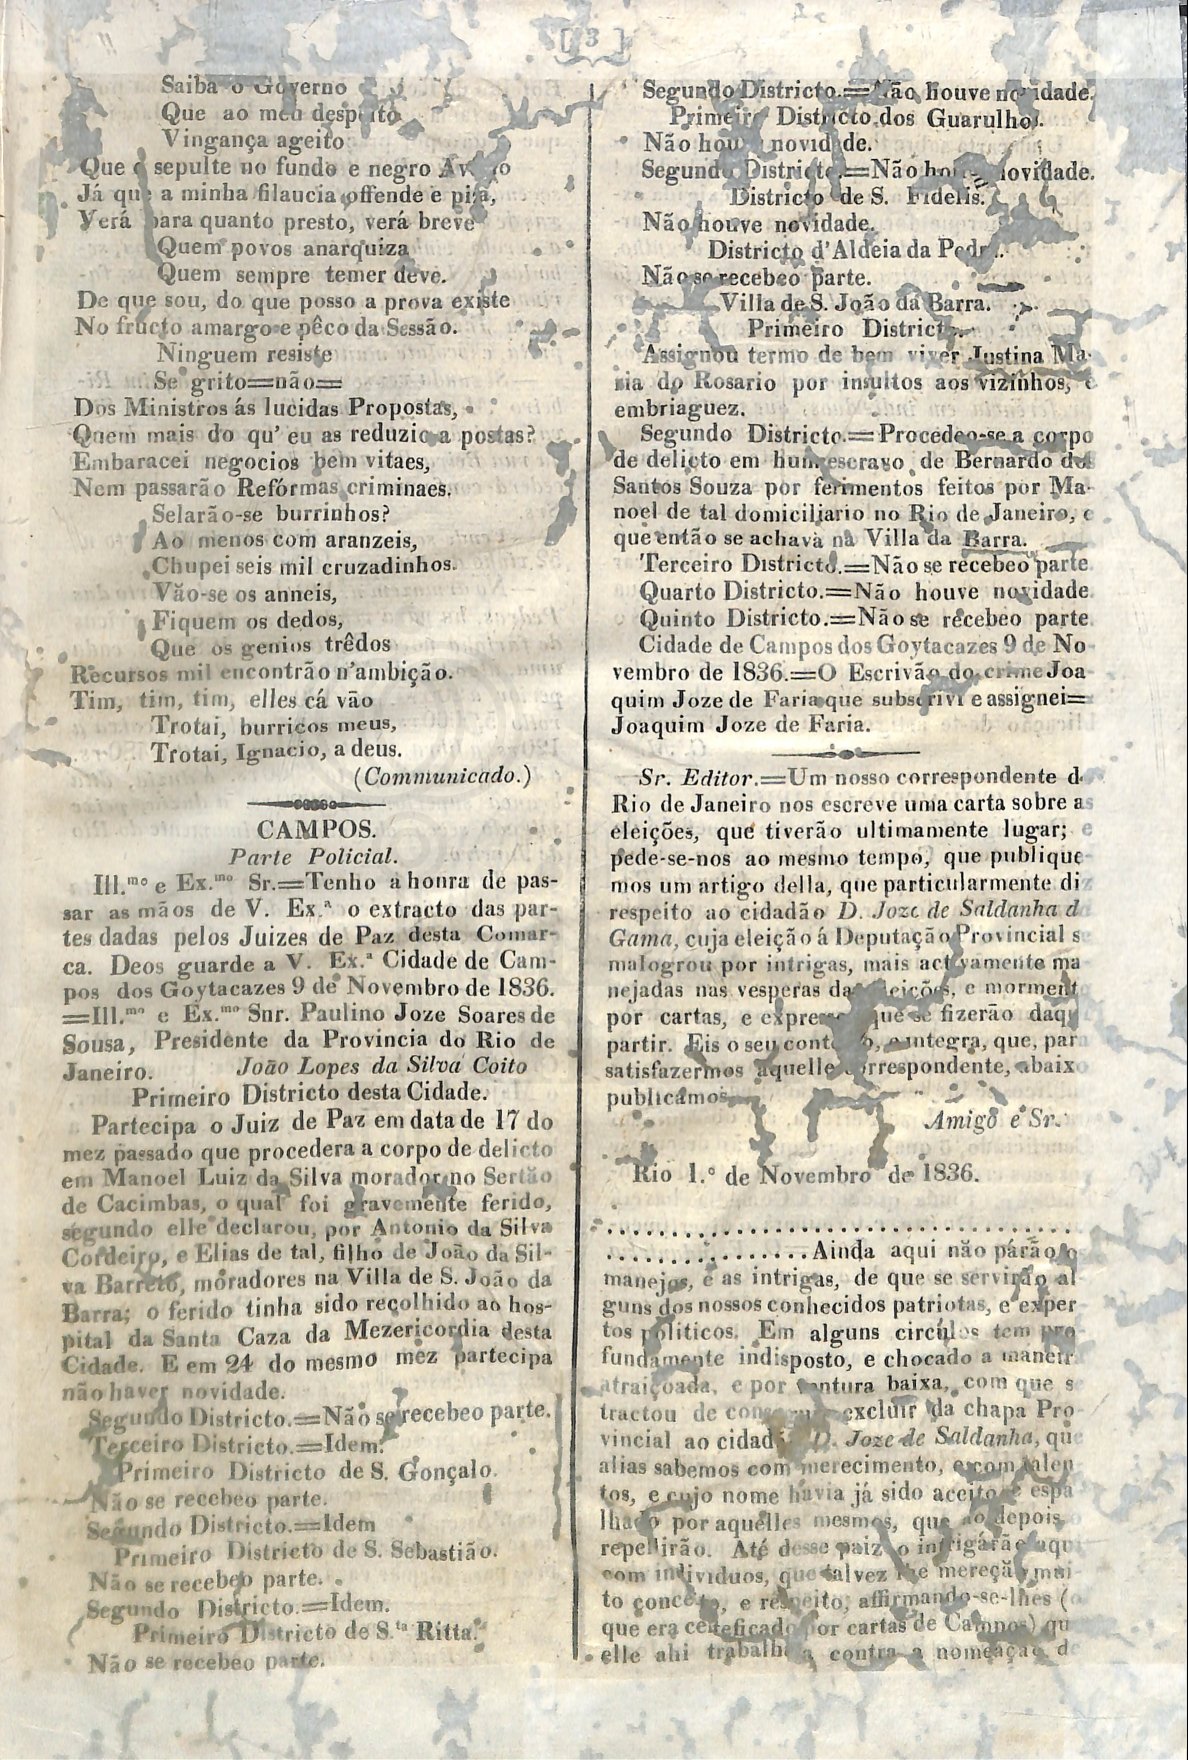 [3]
Saiba o Governo
Que ao meu despeito
Vingança ageito
Que o sepulte no fundo e negro Averno
Já que a minha filaucia offende e piza,
Verá para quanto presto, verá breve
Quem povos anarquiza
Quem sempre temer deve.
De que sou, do que posso a prova existe
No fructo amargo e pêco da Sessão.
Ninguem resiste
Se grito=não=
Dos Ministros ás lucidas Propostas,
Quem mais do qu' eu as reduzio a postas?
Embaracei negocios bem vitaes,
Nem passarão Refórmas criminaes.
Selarão-se burrinhos?
Ao menos com aranzeis,
Chupei seis mil cruzadinhos.
Vão-se os anneis,
Fiquem os dedos,
Que os genios trêdos
Recursos mil encontrão n'ambição.
Tim, tim, tim, elles cá vão
Trotai, burricos meus,
Trotai, Ignacio, a deus.
(Communicado.)
CAMPOS.
Parte Policial.
Ill.mo e Ex.mo Sr.=Tenho a honra de pas-
sar as mãos de V. Ex.a o extracto das par-
tes dadas pelos Juizes de Paz desta Comar-
ca. Deos guarde a V. Ex.a Cidade de Cam-
pos dos Goytacazes 9 de Novembro de 1836.
=Ill.mo e Ex.mo Snr. Paulino Joze Soares de
Sousa, Presidente da Provincia do Rio de
Janeiro. João Lopes da Silva Coito
Primeiro Districto desta Cidade.
Partecipa o Juiz de Paz em data de 17 do
mez passado que procedera a corpo de delicto
em Manoel Luiz da Silva morador no Sertão
de Cacimbas, o qual foi gravemente ferido,
segundo elle declarou, por Antonio da Silva
Cordeiro, e Elias de tal, filho de João da Sil-
va Barreto, moradores na Villa de S. João da
Barra; o ferido tinha sido recolhido ao hos-
pital da Santa Caza da Mezericordia desta
Cidade. E em 24 do mesmo mez partecipa
não haver novidade.
Segundo Districto.=Não se recebeo parte.
Terceiro Districto.=Idem.
Primeiro Districto de S. Gonçalo.
Não se recebeo parte.
Segundo Districto.=Idem
Primeiro Districto de S. Sebastião.
Não se recebeo parte.
Segundo Districto.=Idem.
Primeiro Districto de S.ta Ritta.
Não se recebeo parte.
Segundo Districto.=Não houve novidade.
Primeiro Districto dos Guarulhos.
Não houve novidade.
Segundo Districto.=Não houve novidade.
Districto de S. Fidelis.
Não houve novidade.
Districto d'Aldeia da Pedra.
Não se recebeo parte.
Villa de S. João da Barra.
Primeiro Districto.
Assignou termo de bem viver Justina Ma-
ria do Rosario por insultos aos vizinhos, e
embriaguez.
Segundo Districto.=Procedeo-se a corpo
de delicto em hum escravo de Bernardo dos
Santos Souza por ferimentos feitos por Ma-
noel de tal domiciliario no Rio de Janeiro, e
que então se achava na Villa da Barra.
Terceiro Districto.=Não se recebeo parte
Quarto Districto.=Não houve novidade
Quinto Districto.=Não se recebeo parte
Cidade de Campos dos Goytacazes 9 de No-
vembro de 1836.=O Escrivão do crime Joa-
quim Joze de Faria que subscrivi e assignei=
Joaquim Joze de Faria.
Sr. Editor.=Um nosso correspondente d
Rio de Janeiro nos escreve uma carta sobre as
eleições, que tiverão ultimamente lugar; e
pede-se-nos ao mesmo tempo, que publique
mos um artigo della, que particularmente diz
respeito ao cidadão D. Joze de Saldanha d
Gama, cuja eleição á Deputação Provincial s
malogrou por intrigas, mais activamente ma
nejadas nas vesperas das eleições, e morment
por cartas, e expressos que se fizerão daqu
partir. Eis o seu conteúdo, e integra, que, para
satisfazermos aquelle correspondente, abaixo
publicamos.
Amigo e Sr.
Rio 1.º de Novembro de 1836.
..............................
...............Ainda aqui não párão os
manejos, e as intrigas, de que se servirão al
guns dos nossos conhecidos patriotas, e exper
tos politicos. Em alguns circúlos tem pro
fundamente indisposto, e chocado a maneira
atraiçoada, e por ventura baixa, com que s
tractou de conseguir excluir da chapa Pro
vincial ao cidadão D. Joze de Saldanha, que
alias sabemos com merecimento, e com talen
tos, e cujo nome havia já sido aceito, e espa
lhado por aquelles mesmos, que ao depois
repellirão. Até desse paiz o intrigárão aqui
com individuos, que talvez lhe mereção mui
to conceito, e respeito, affirmando-se-lhes (o
que era certeficado por cartas de Campos) qu
elle ahi trabalhava contra a nomeação d